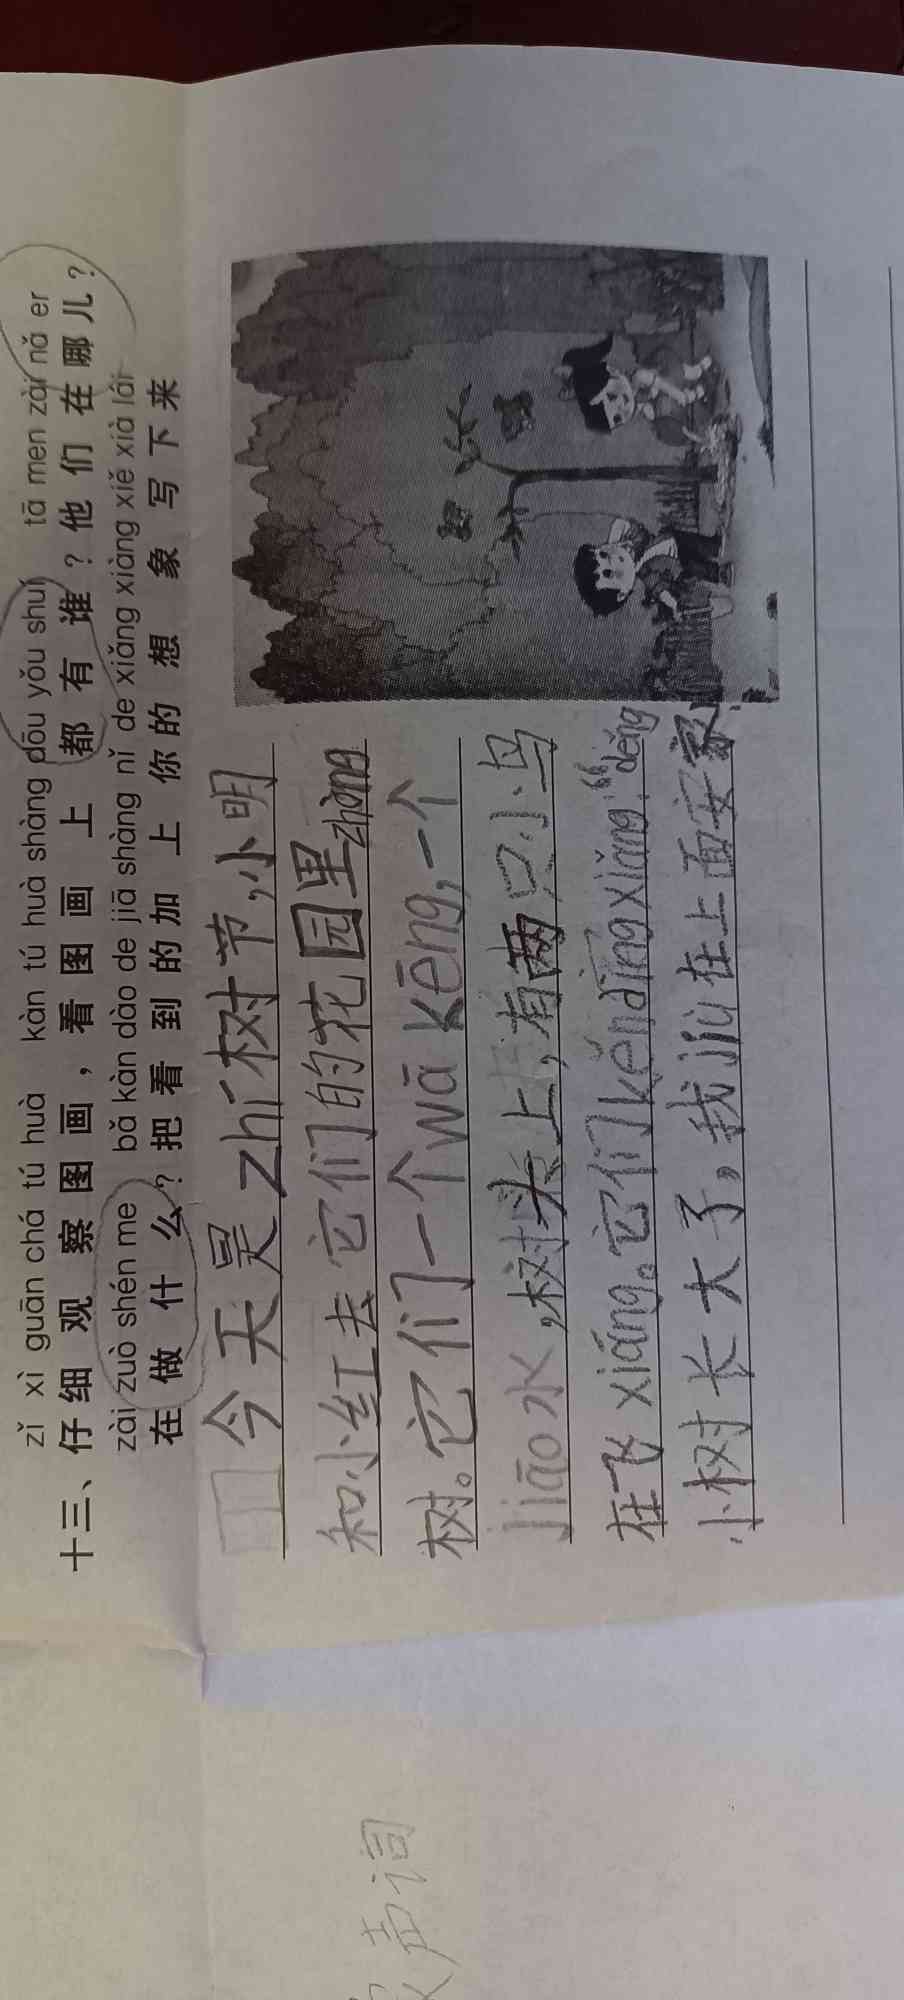 zǐ xì guān chá tú huà kàn tú huà shàng dōu yǒu shuí tā men zài nǎ er
十三、仔细观察图画，看图画上都有谁？他们在哪儿？
zài zuò shén me bǎ kàn dào de jiā shàng nǐ de xiǎng xiàng xiě xià lái
在做什么？把看到的加上你的想象写下来
今天是zhí树节，小明
和小红去它们的花园里zhòng
树。它们一个wā kēng，一个
jiāo水，树头上，有两只小鸟
在飞xiáng。它们kěndìngxiǎng：“děng
小树长大了，我jiù在上面安家
声词